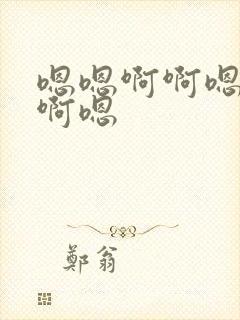 嗯嗯啊啊嗯
啊嗯
鄭翁